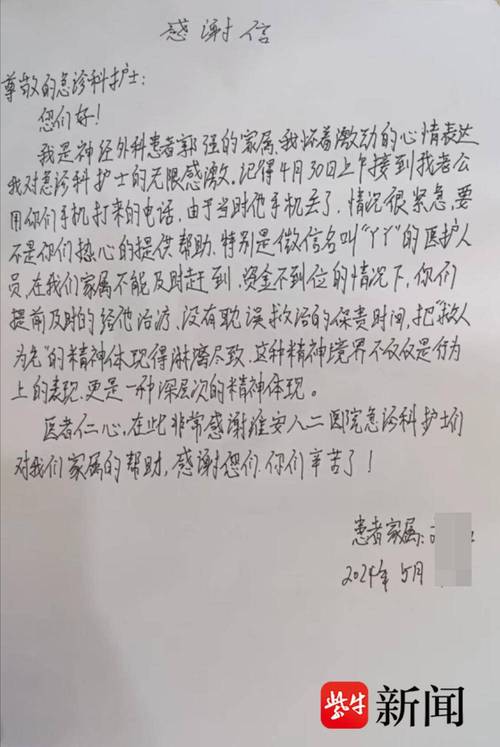 感谢信
尊敬的急诊科护士：
您们好！
我是神经外科患者郭强的家属，我怀着激动的心情表达
我对急诊科护士的无限感激。记得4月30日上午接到我老公
用你们手机打来的电话，由于当时他手机丢了，情况很紧急，要
不是你们热心的提供帮助，特别是微信名叫"丫丫"的医护人
员，在我们家属不能及时赶到，资金不到位的情况下，你们
提前及时的给他治疗，没有耽误救治的保贵时间，把"救人
为先"的精神体现得淋漓尽致，这种精神境界不仅仅是行为
上的表现，更是一种深层次的精神体现。
医者仁心，在此非常感谢淮安人二医院急诊科护士们
对我们家属的帮助，感谢您们，你们辛苦了！
患者家属：
2024年5月
紫牛 新闻